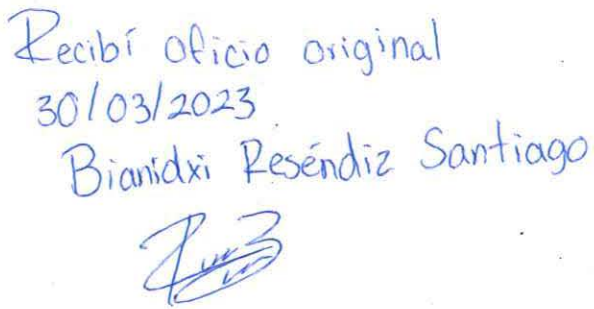 Recibí oficio original
30/03/2023
Bianidxi Reséndiz Santiago